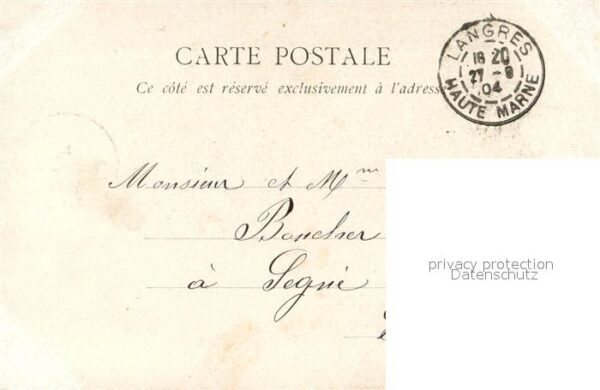 LANGRES
18 20
27 - 9
04
HAUTE MARNE
CARTE POSTALE
Ce côté est réservé exclusivement à l'adresse
Monsieur et Mm
Boucher
à Segrié
privacy protection
Datenschutz